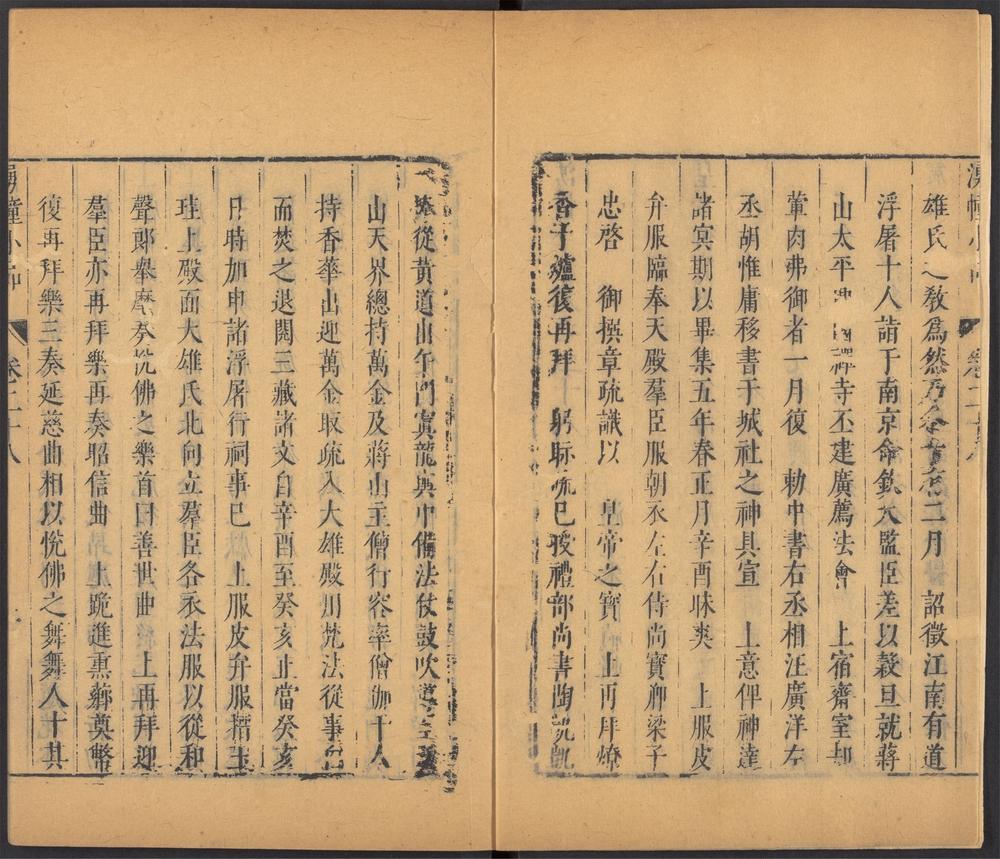 雄氏之敎爲然乃 二月 詔徵江南有道
浮屠十人詣于南京命欽天監臣差以穀旦就蔣
山太平 禪寺丕建廣薦法會 上宿齋室却
葷肉弗御者一月復 勅中書右丞相汪廣洋左
丞胡惟庸移書于城社之神具宣 上意俾神達
諸㝠期以畢集五年春正月辛酉昧爽 上服皮
弁服臨奉天殿羣臣服朝衣左右侍尚寳卿梁子
忠啓 御撰章疏識以 皇帝之寳 上再拜燎
香于爐復再拜 躬眎疏已授禮部尚書陶凱凱
從黄道出午門寘龍輿中備法仗鼓吹導至
山天界總持萬金及蔣山主僧行容率僧伽千人
持香華出迎萬金取疏入大雄殿用梵法從事
而焚之退閲三藏諸文自辛酉至癸亥止當癸亥
日時加申諸浮屠行祠事已上服皮弁服搢玉
珪上殿面大雄氏北向立羣臣各衣法服以從和
聲郞舉麾奏悦佛之樂首曰善世曲 上再拜迎
羣臣亦再拜樂再奏昭信曲 上跪進熏薌奠幣
復再拜樂三奏延慈曲相以悦佛之舞舞人十其
湧幢小品 卷二十八